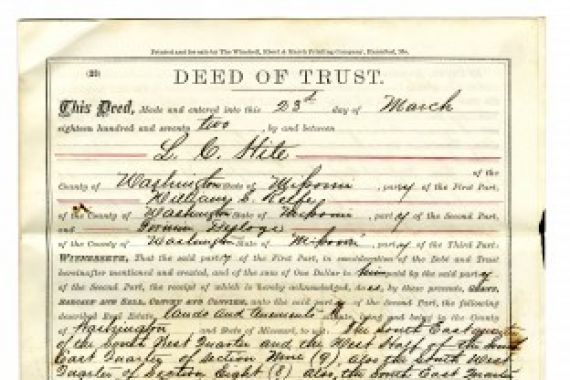 Printed and for sale by The Winchell, Ebert & Marsh Printing Company, Hannibal, Mo.
(29)
DEED OF TRUST.
This Deed, Made and entered into this 23d day of March
eighteen hundred and seventy two by and between
L. C. Hite
of the
County of Washington State of Missouri, party of the First Part,
William S. Relfe
of the County of Washington State of Missouri, party of the Second Part,
and Firmin Desloge
of the County of Washington State of Missouri, party of the Third Part:
WITNESSETH, That the said party of the First Part, in consideration of the Debt and Trust
hereinafter mentioned and created, and of the sum of One Dollar to him paid by the said party
of the Second Part, the receipt of which is hereby acknowledged, do es, by these presents, GRANT,
BARGAIN AND SELL, CONVEY AND CONFIRM, unto the said party of the Second Part, the following
described Real Estate, lands and situate, lying and being in the County
of Washington and State of Missouri, to-wit: The South East quarter
of the South West Quarter and the West Half of the South
East Quarter of Section Nine (9), also the South West
Quarter of Section Eight (8) also, the South East Quarter